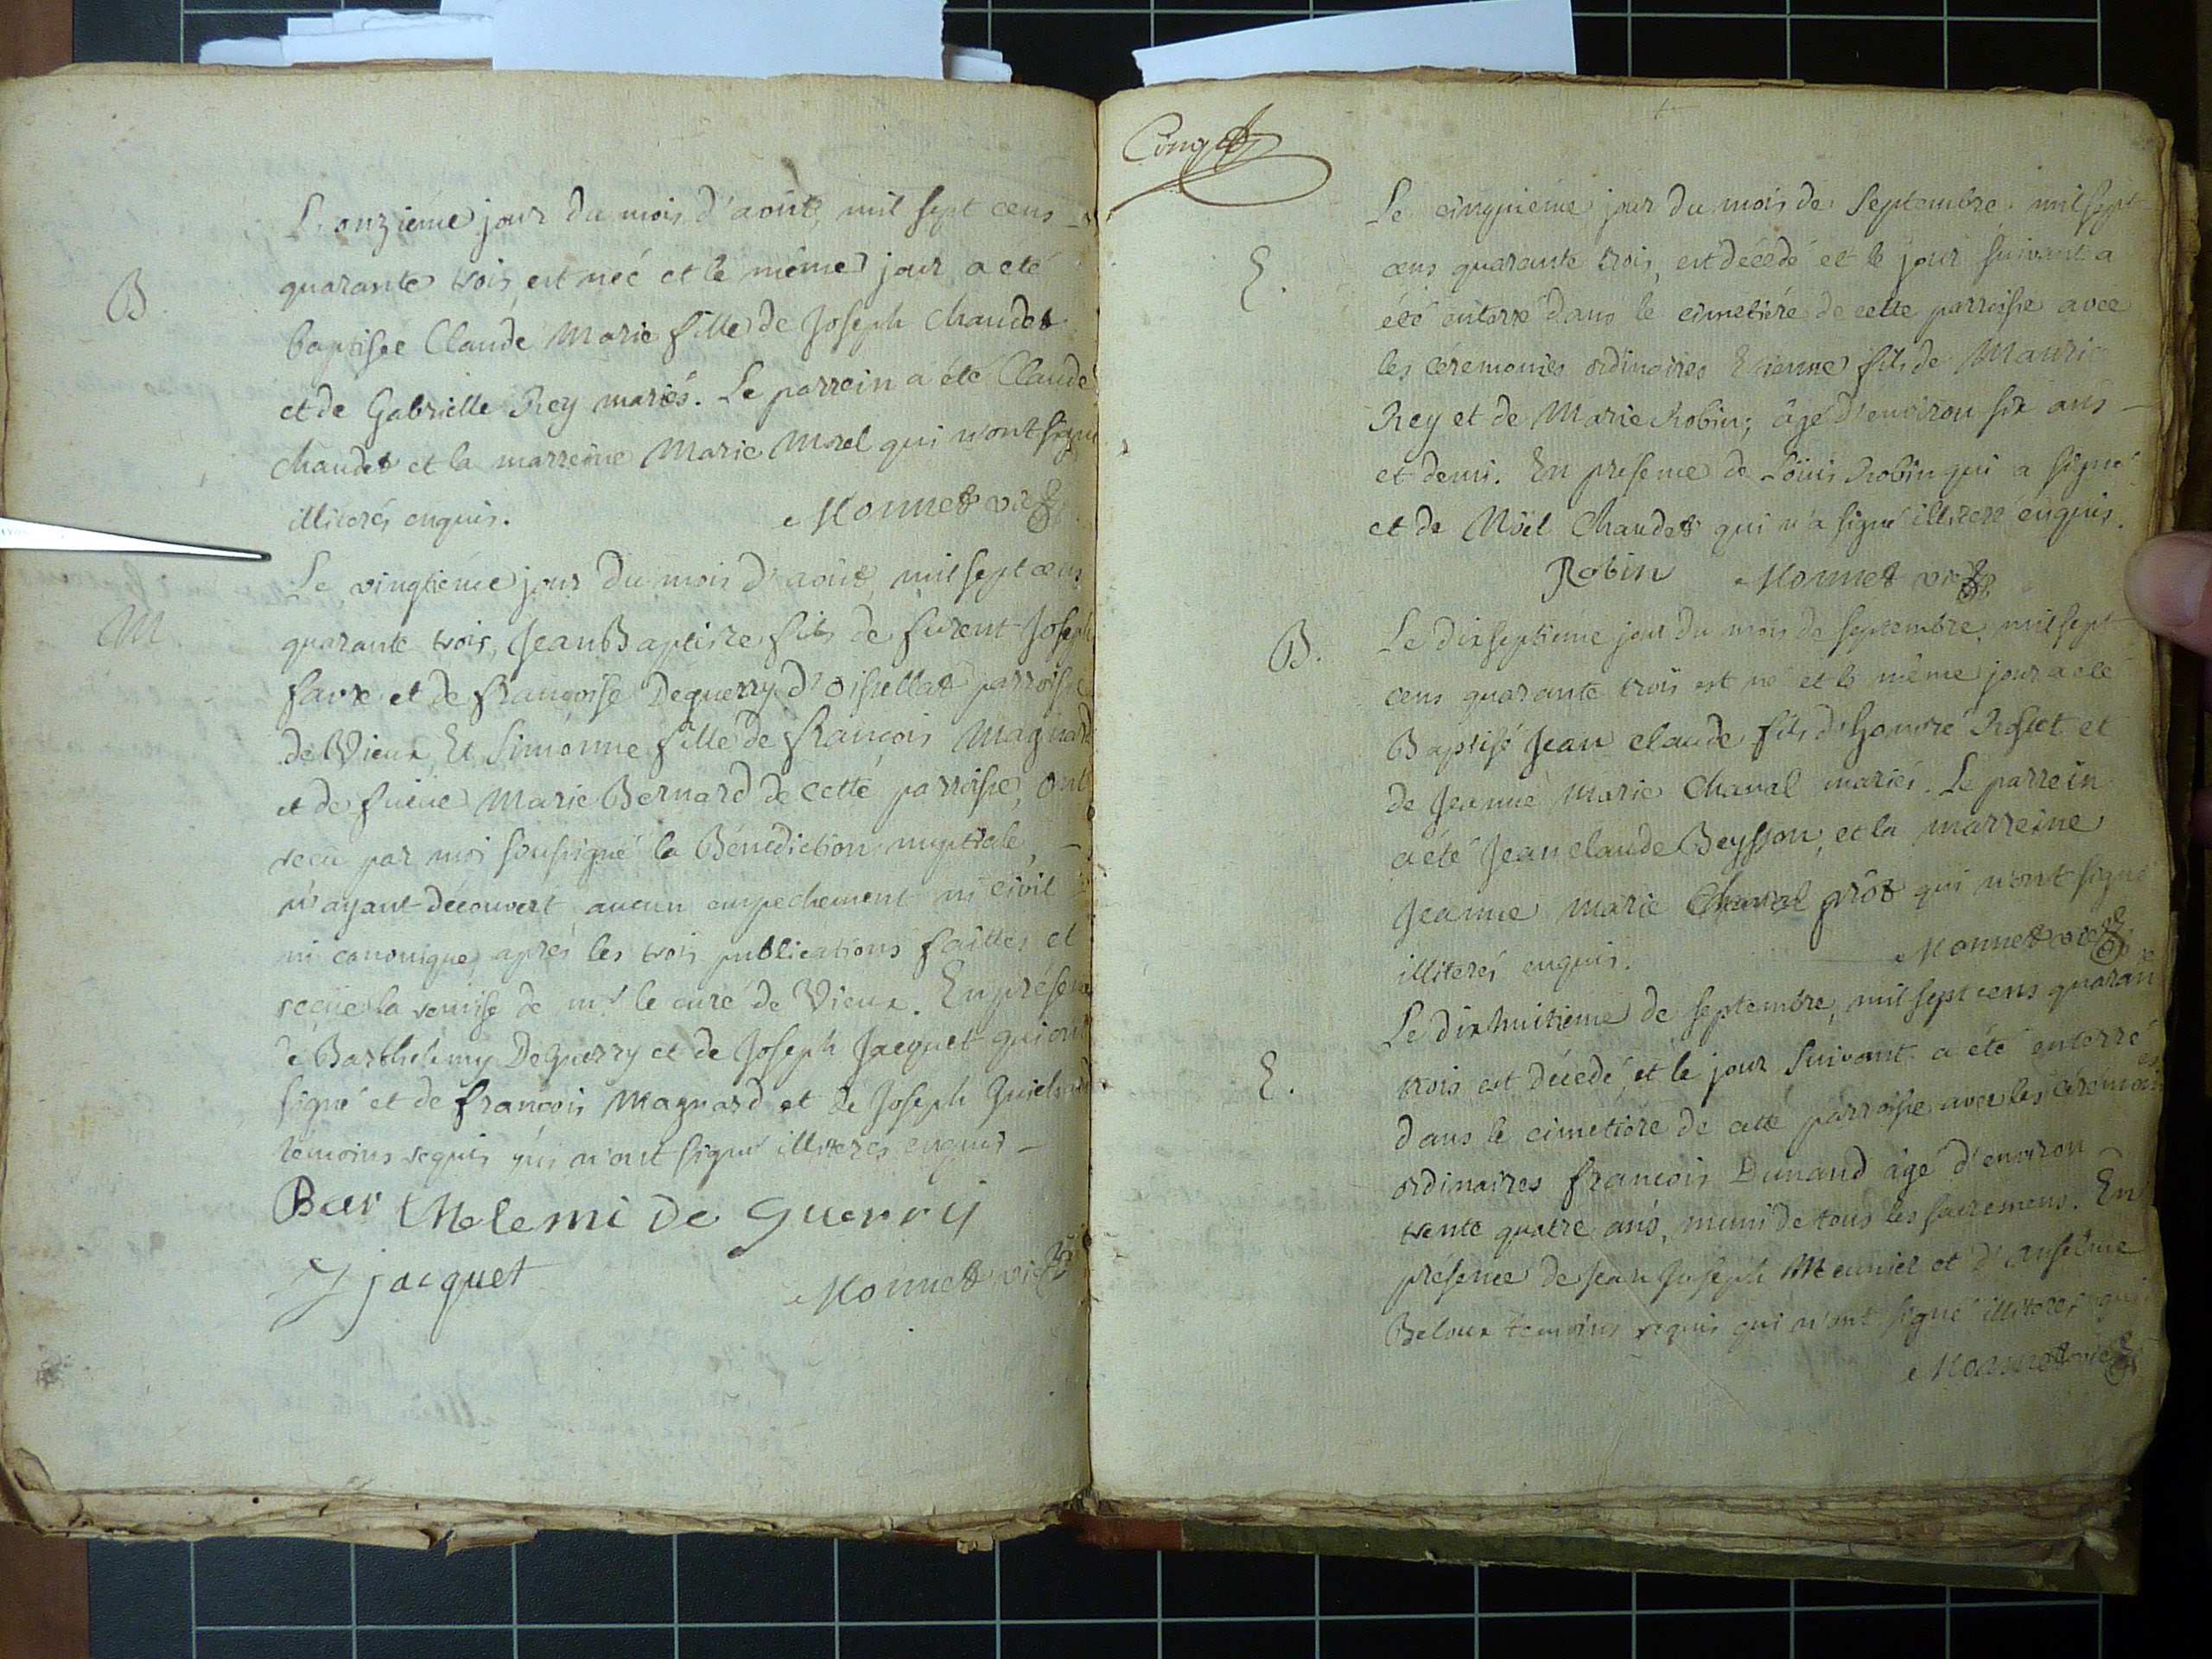 L'onziéme jour du mois d'août, mil sept cens
B. quarante trois, est née et le même jour a été
baptisée Claude Marie fille de Joseph Chaudet
et de Gabrielle Rey mariés. Le parrein a été Claude
Chaudet et la marreine Marie Morel qui n'ont signé
illiterés enquis. Monnet vic
Le vingtiéme jour du mois d'août, mil sept cens
M. quarante trois, Jean Baptiste fils de furent Joseph
favre et de françoise Deguerry d'Oisellat parroisse
de Vieux, Et Simonne fille de françois Magnard
et de fuëue Marie Bernard de cette parroisse, ont
recu par moi soussigné la Bénediction nuptiale,
n'ayant découvert aucun empechement ni civil
ni canonique, aprés les trois publications faittes et
recüe la remise de mr le curé de Vieux. En présence
de Barthelemy Deguerry et de Joseph Jacquet qui ont
signé et de françois Magnard et de Joseph
temoins requis qui n'ont signé illiteres enquis
Bar thelemi De Guerry
J jacquet Monnet vic
Conget
Le cinquiéme jour du mois de Septembre, mil sept
E. cens quarante trois, est décédé et le jour suivant a
été enterré dans le cimetiére de cette parroisse avec
les céremonies ordinaires Etienne fils de Mauric
Rey et de Marie Robin; âgé d'environ six ans
et demi. En presence de Loüis Robin qui a signé
et de Nöel Chaudet qui n'a signé illiteré enquis.
Robin Monnet vic
B. Le dixseptiéme jour du mois de septembre, mil sept
cens quarante trois est né et le même jour a été
Baptisé Jean claude fils d'honoré Rosset et
de Jeanne Marie Chaval mariés. Le parrein
a été Jean claude Beysson, et la marreine
Jeanne marie Chaval prôt qui n'ont signé
illiterés enquis. Monnet vic
Le dixhuitiéme de septembre, mil sept cens quaran
E. trois est décedé, et le jour suivant a été enterré
dans le cimetiére de cette parroisse avec les céremoni es
ordinaires françois Dunand âgé d'environ
trente quatre ans, muni de tous les sacremens. En
présence de Jean Joseph Meunier et d'Anselme
Beloux temoins requis qui n'ont signé illiteres
Monnet vic